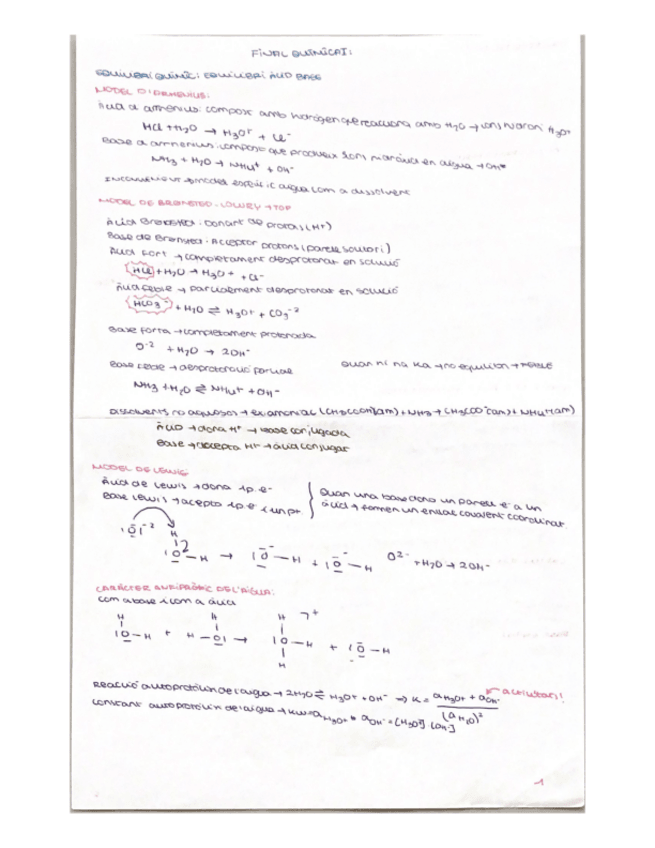 FINAL QUÍMICA I:
EQUILIBRI QUÍMIC: EQUILIBRI ÀCID BASE
MODEL D'ARRHENIUS:
Àcid d'arrhenius: compost amb hidrogen que reacciona amb H2O → ions hidroni H3O+
HCl + H2O → H3O+ + Cl-
Base d'arrhenius: compost que produeix ions hidròxid en aigua → OH-
NH3 + H2O → NH4+ + OH-
INCONVENIENT → model específic aigua com a dissolvent
MODEL DE BRØNSTED-LOWRY → TOP
Àcid Brønsted: donant de protons (H+)
Base de Brønsted: Acceptor protons (parell solitari)
Àcid Fort → completament desprotonat en solució
HCl + H2O → H3O+ + Cl-
Àcid feble → parcialment desprotonat en solució
HCO3- + H2O ⇌ H3O+ + CO3-2
Base forta → completament protonada
O-2 + H2O → 2OH-
Base feble → desprotonació parcial
Quan hi ha Ka → no equilibri → FEBLE
NH3 + H2O ⇌ NH4+ + OH-
Dissolvents no aquosos → ex amoníac (CH3COOH(am)) + NH3 → CH3COO-(am) + NH4+(am)
ÀCID → dona H+ → base conjugada
Base → accepta H+ → àcid conjugat
MODEL DE LEWIS:
Àcid de Lewis → dona 1p. e-
Base Lewis → accepta 1p. e-
Quan una base dona un parell e- a un
àcid → formen un enllaç covalent coordinat
|O|-2
H
|O-H → |O-H + |O-H O2- + H2O → 2OH-
CARÀCTER AMFIPRÒTIC DE L'AIGUA:
com a base i com a àcid
H H H ⁊+
|O-H + H-O| → |O-H + |O-H
H
Reacció autoprotòlisi de l'aigua → 2H2O ⇌ H3O+ + OH- ⇒ K = aH3O+ + aOH- / (aH2O)2 activitats!
Constant autoprotòlisi de l'aigua → Kw = aH3O+ * aOH- = [H3O+] · [OH-]
1